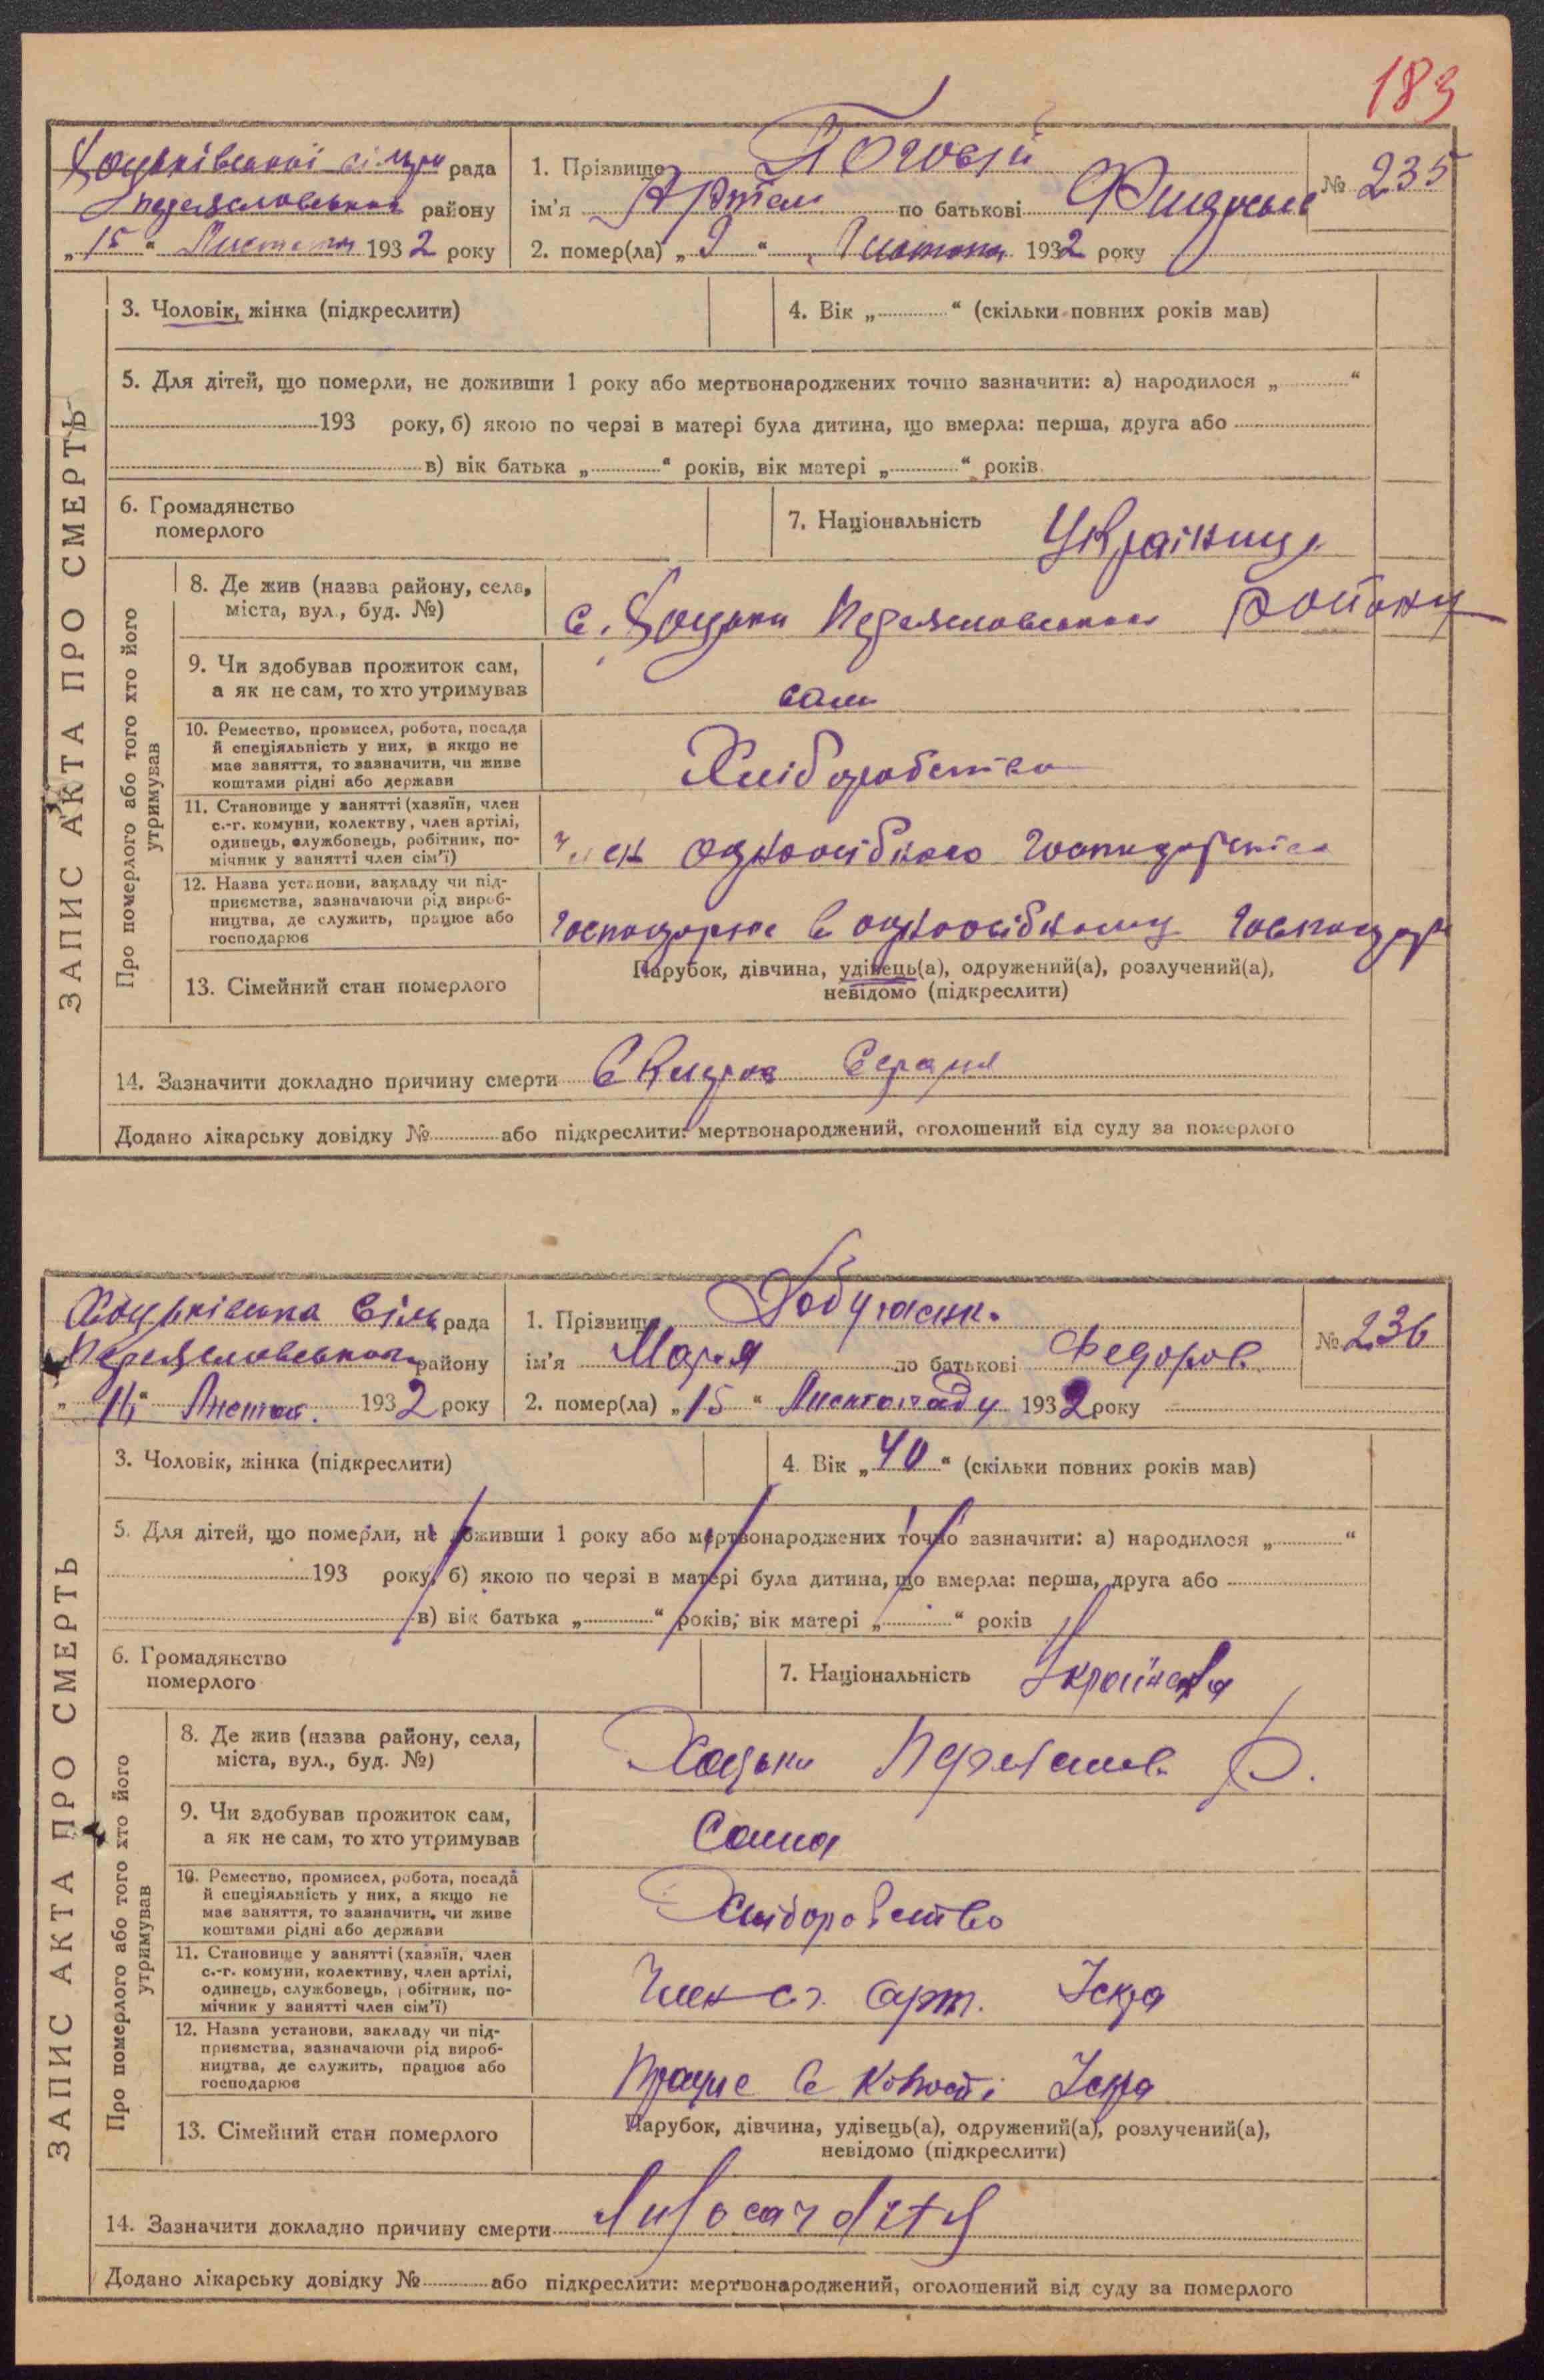 183
Хоцьківської сільради рада
Переяславського району
„15" Листопа 1932 року
1. Прізвище
ім'я Артем по батькові
№ 235
2. помер(ла) „9" Листопа 1932 року
3. Чоловік, жінка (підкреслити)
4. Вік „ " (скільки повних років мав)
5. Для дітей, що померли, не доживши 1 року або мертвонароджених точно зазначити: а) народилося „ "
193 року, б) якою по черзі в матері була дитина, що вмерла: перша, друга або
в) вік батька „ " років, вік матері „ " років
6. Громадянство
померлого
7. Національність Українець
ЗАПИС АКТА ПРО СМЕРТЬ
Про померлого або того хто його
утримував
8. Де жив (назва району, села,
міста, вул., буд. №)
с. Хоцьки Переяславського району
9. Чи здобував прожиток сам,
а як не сам, то хто утримував
сам
10. Ремество, промисел, робота, посада
й спеціяльність у них, а якщо не
має заняття, то зазначити, чи живе
коштами рідні або держави
Хліборобство
11. Становище у занятті (хазяїн, член
с.-г. комуни, колектву, член артілі,
одинець, службовець, робітник, по-
мічник у занятті член сім'ї)
член одноосібного господарства
12. Назва установи, закладу чи під-
приємства, зазначаючи рід вироб-
ництва, де служить, працює або
господарює
господарює в одноосібному господар
13. Сімейний стан померлого
Парубок, дівчина, удівець(а), одружений(а), розлучений(а),
невідомо (підкреслити)
14. Зазначити докладно причину смерти
Додано лікарську довідку № або підкреслити: мертвонароджений, оголошений від суду за померлого
Хоцьківська Сіль рада
Переяславського району
Листоп. 1932 року
1. Прізвище
ім'я Марія по батькові Федоров.
№ 236
2. помер(ла) „15" Листопаду 1932 року
3. Чоловік, жінка (підкреслити)
4. Вік „40" (скільки повних років мав)
5. Для дітей, що померли, не доживши 1 року або мертвонароджених точно зазначити: а) народилося „ "
193 року, б) якою по черзі в матері була дитина, що вмерла: перша, друга або
в) вік батька „ " років, вік матері „ " років
6. Громадянство
померлого
7. Національність Українка
ЗАПИС АКТА ПРО СМЕРТЬ
Про померлого або того хто його
утримував
8. Де жив (назва району, села,
міста, вул., буд. №)
Хоцьки Переяслав. р.
9. Чи здобував прожиток сам,
а як не сам, то хто утримував
Сама
10. Ремество, промисел, робота, посада
й спеціяльність у них, а якщо не
має заняття, то зазначити, чи живе
коштами рідні або держави
Хліборобство
11. Становище у занятті (хазяїн, член
с.-г. комуни, колективу, член артілі,
одинець, службовець, робітник, по-
мічник у занятті член сім'ї)
Член с.г. арт. Іскра
12. Назва установи, закладу чи під-
приємства, зазначаючи рід вироб-
ництва, де служить, працює або
господарює
Працює в Іскра
13. Сімейний стан померлого
Парубок, дівчина, удівець(а), одружений(а), розлучений(а),
невідомо (підкреслити)
14. Зазначити докладно причину смерти
Додано лікарську довідку № або підкреслити: мертвонароджений, оголошений від суду за померлого